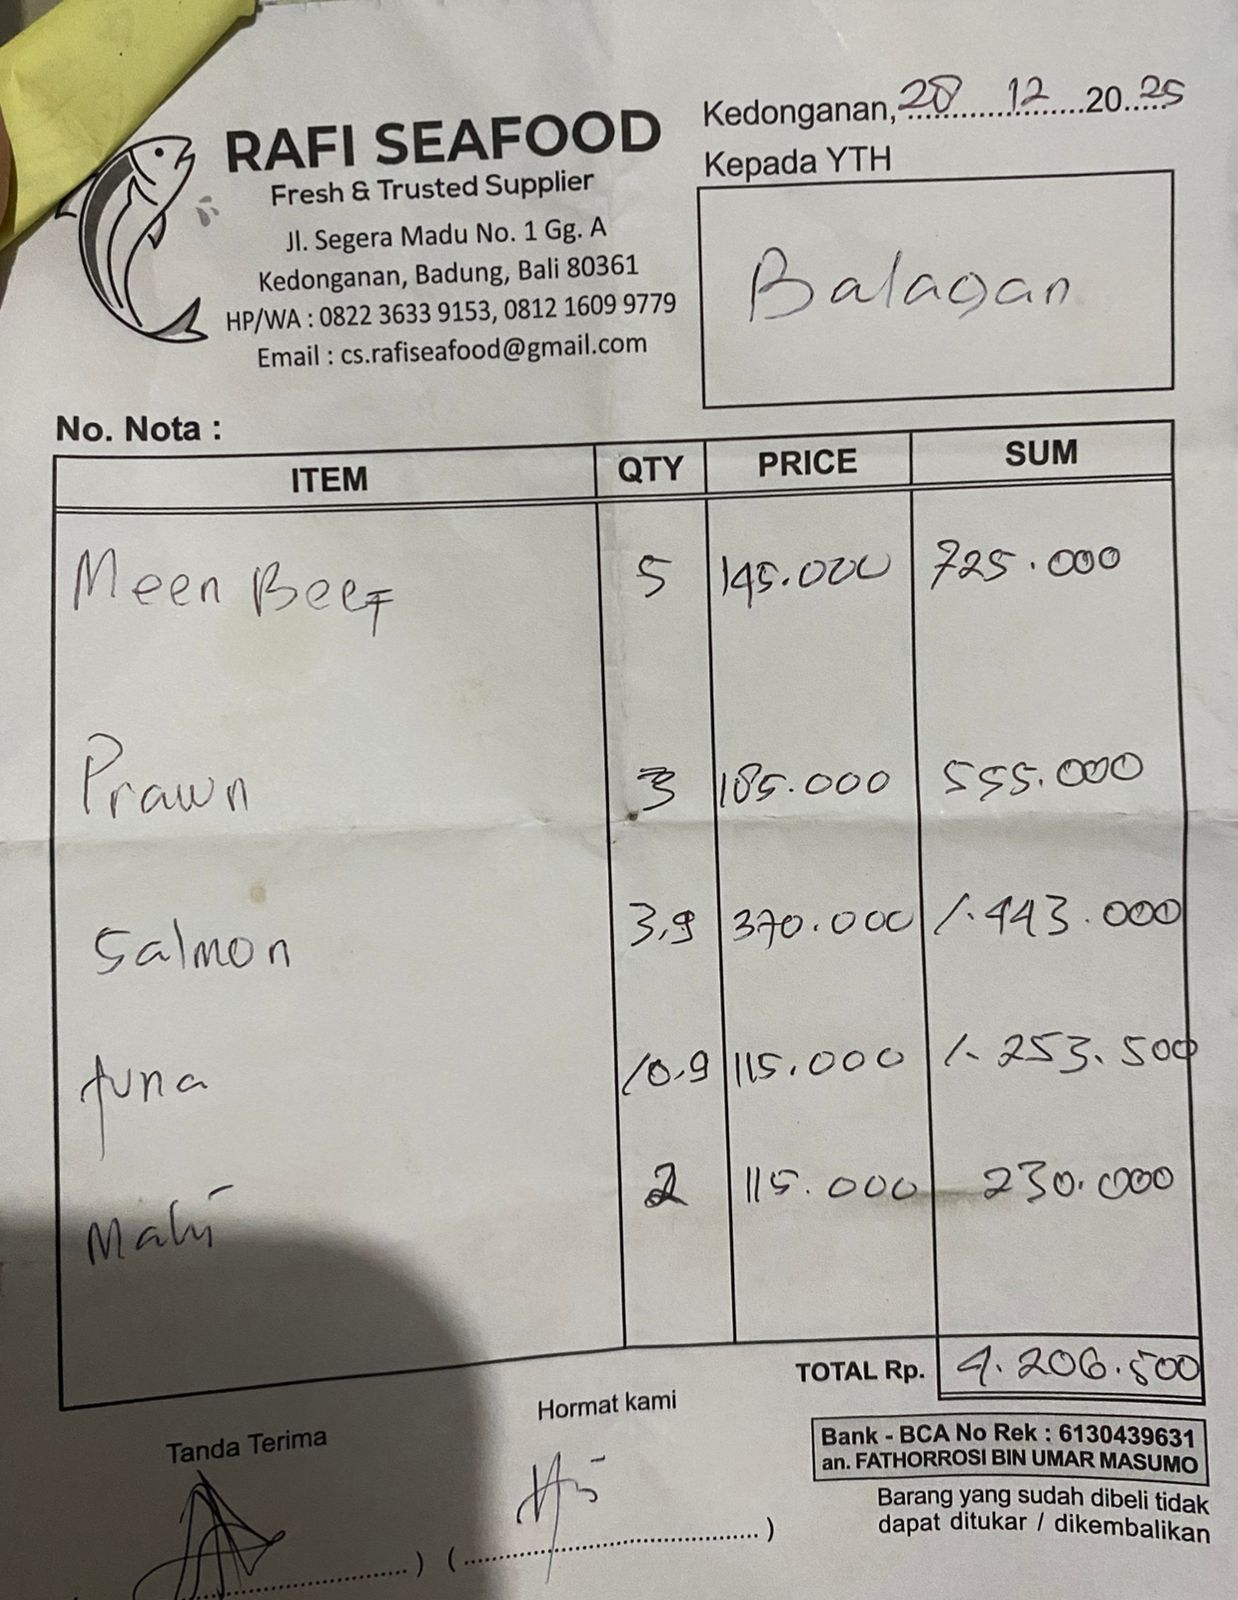 RAFI SEAFOOD
Fresh & Trusted Supplier
Jl. Segera Madu No. 1 Gg. A
Kedonganan, Badung, Bali 80361
HP/WA : 0822 3633 9153, 0812 1609 9779
Email : cs.rafiseafood@gmail.com
Kedonganan, 28 12 2025
Kepada YTH
Balagan
No. Nota :
ITEM QTY PRICE SUM
Meen Beef 5 145.000 725.000
Prawn 3 185.000 555.000
Salmon 3,9 370.000 1.443.000
tuna 10,9 115.000 1.253.500
Mahi 2 115.000 230.000
TOTAL Rp. 4.206.500
Tanda Terima
Hormat kami
Bank - BCA No Rek : 6130439631
an. FATHORROSI BIN UMAR MASUMO
Barang yang sudah dibeli tidak
dapat ditukar / dikembalikan